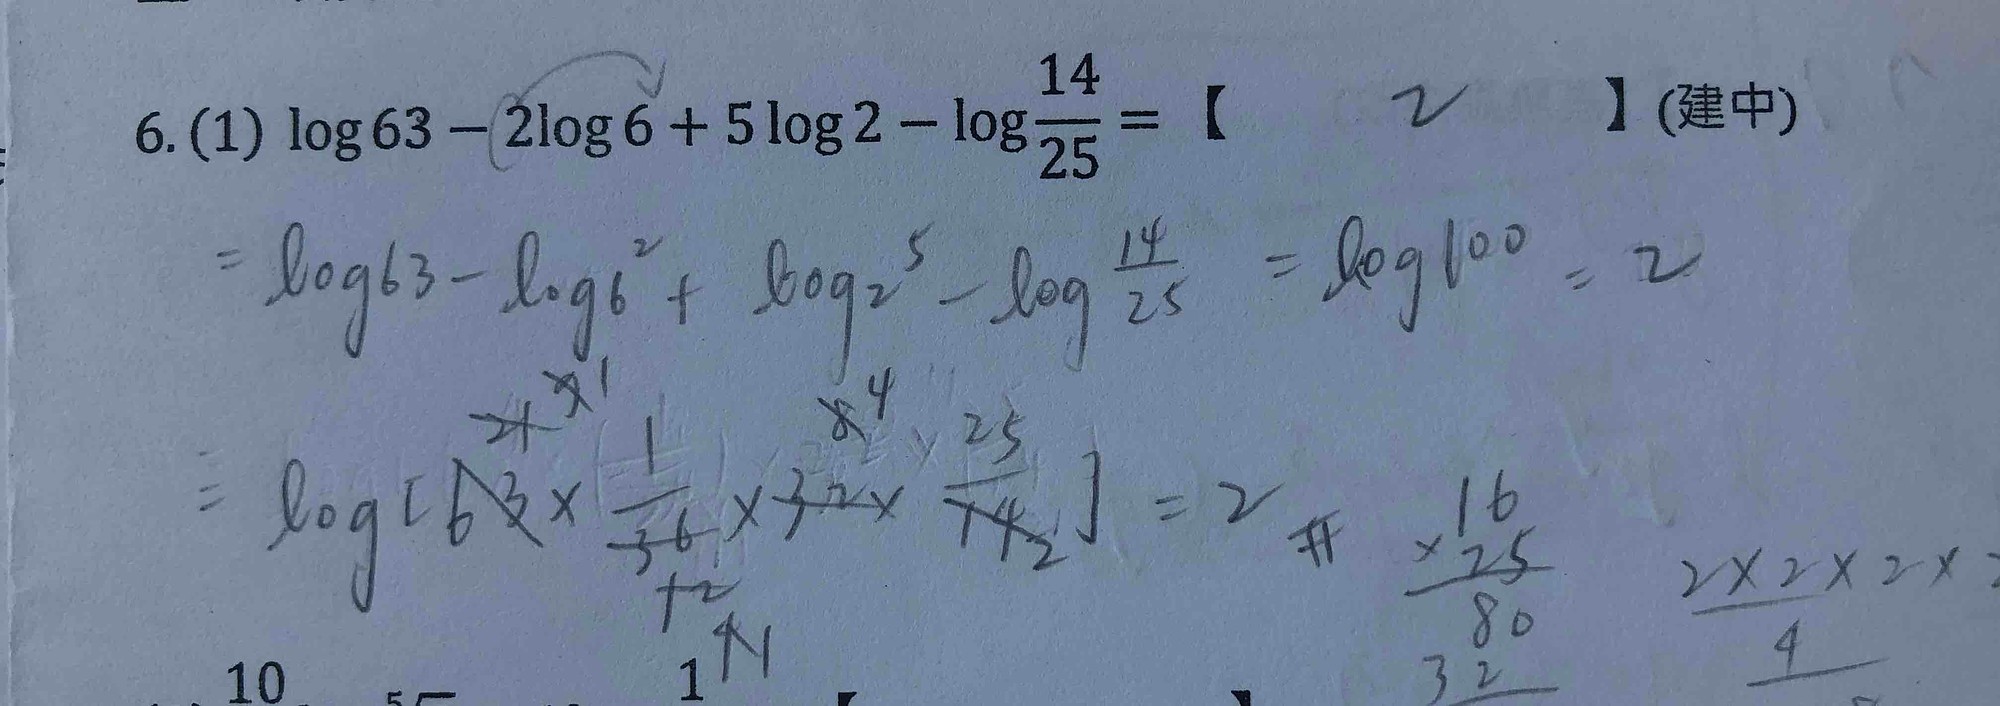 6. (1) log 63 − 2log 6 + 5 log 2 − log 14/25 = 【 2 】(建中)
= log63 − log6² + log2⁵ − log 14/25 = log100 = 2
= log[63 × 1/36 × 32 × 25/14] = 2 #
21 7 1
8 4
12
4 1
2
16
× 25
80
32
2 × 2 × 2 ×
4
10
5√
1
【 】